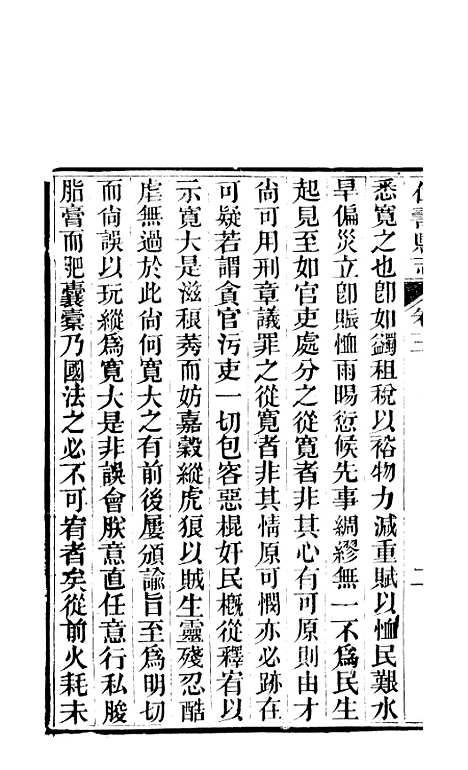 縣志 卷二 二
悉寬之也卽如蠲租稅以裕物力減重賦以恤民艱水
旱偏災立卽賑恤雨暘愆候先事綢繆無一不爲民生
起見至如官吏處分之從寬者非其心有可原則由才
尚可用刑章議罪之從寬者非其情原可憫亦必跡在
可疑若謂貪官污吏一切包容惡棍奸民概從釋宥以
示寬大是滋稂莠而妨嘉穀縱虎狼以賊生靈殘忍酷
虐無過於此尚何寬大之有前後屢頒諭旨至爲明切
而尚誤以玩縱爲寬大是非誤會朕意直任意行私朘
脂膏而肥囊橐乃國法之必不可宥者矣從前火耗未